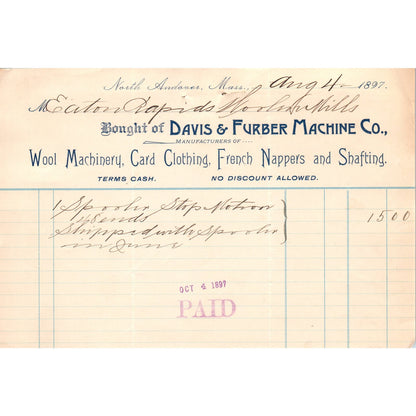 North Andover, Mass., Aug 4 1897.
M Eaton Rapids Woolen Mills
Bought of DAVIS & FURBER MACHINE CO.,
MANUFACTURERS OF....
Wool Machinery, Card Clothing, French Nappers and Shafting.
TERMS CASH. NO DISCOUNT ALLOWED.
1 Spooler Stop Motion
48 ends
Shipped with Spooler 15 00
in June
OCT 4 1897
PAID